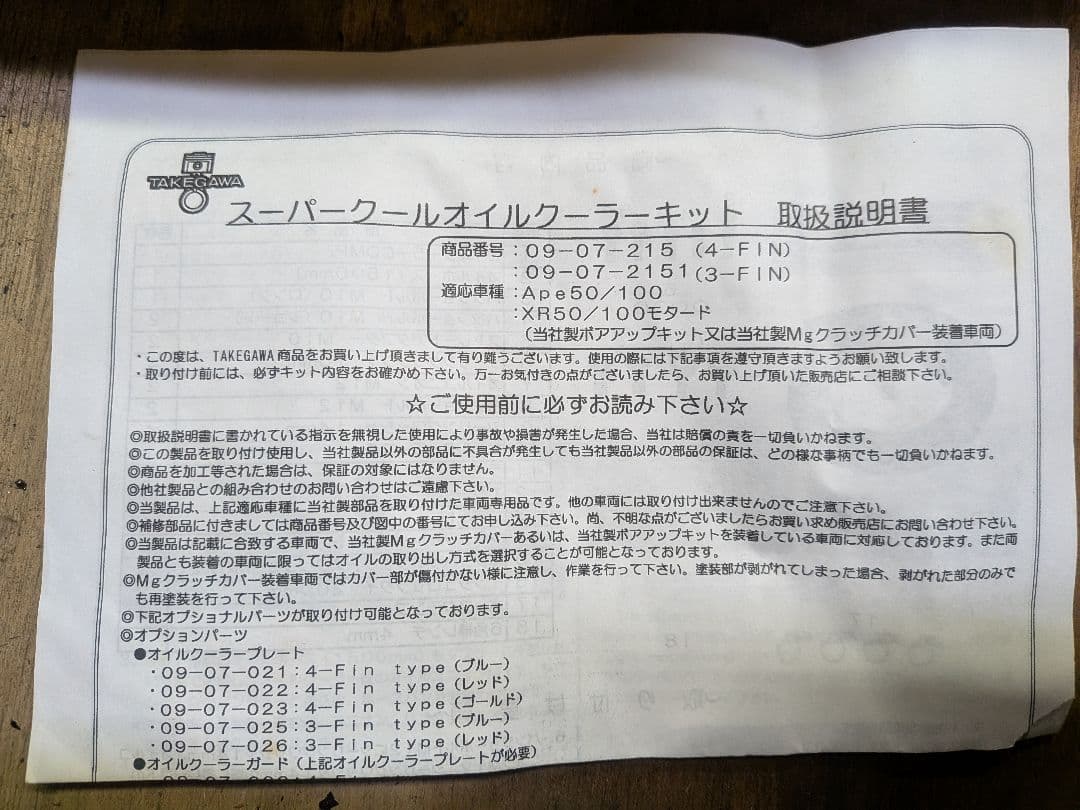 TAKEGAWA
スーパークールオイルクーラーキット 取扱説明書
商品番号：09-07-215 (4-FIN)
：09-07-2151(3-FIN)
適応車種：Ape50/100
：XR50/100モタード
(当社製ボアアップキット又は当社製Mgクラッチカバー装着車両)
・この度は、TAKEGAWA商品をお買い上げ頂きまして有り難うございます。使用の際には下記事項を遵守頂きますようお願い致します。
・取り付け前には、必ずキット内容をお確かめ下さい。万一お気付きの点がございましたら、お買い上げ頂いた販売店にご相談下さい。
☆ご使用前に必ずお読み下さい☆
◎取扱説明書に書かれている指示を無視した使用により事故や損害が発生した場合、当社は賠償の責を一切負いかねます。
◎この製品を取り付け使用し、当社製品以外の部品に不具合が発生しても当社製品以外の部品の保証は、どの様な事柄でも一切負いかねます。
◎商品を加工等された場合は、保証の対象にはなりません。
◎他社製品との組み合わせのお問い合わせはご遠慮下さい。
◎当製品は、上記適応車種に当社製部品を取り付けた車両専用品です。他の車両には取り付け出来ませんのでご注意下さい。
◎補修部品に付きましては商品番号及び図中の番号にてお申し込み下さい。尚、不明な点がございましたらお買い求め販売店にお問い合わせ下さい。
◎当製品は記載に合致する車両で、当社製Mgクラッチカバーあるいは、当社製ボアアップキットを装着している車両に対応しております。また両
製品とも装着の車両に限ってはオイルの取り出し方式を選択することが可能となっております。
◎Mgクラッチカバー装着車両ではカバー部が傷付かない様に注意し、作業を行って下さい。塗装部が剥がれてしまった場合、剥がれた部分のみで
も再塗装を行って下さい。
◎下記オプショナルパーツが取り付け可能となっております。
◎オプションパーツ
●オイルクーラープレート
・09-07-021：4-Fin type(ブルー)
・09-07-022：4-Fin type(レッド)
・09-07-023：4-Fin type(ゴールド)
・09-07-025：3-Fin type(ブルー)
・09-07-026：3-Fin type(レッド)
●オイルクーラーガード(上記オイルクーラープレートが必要)